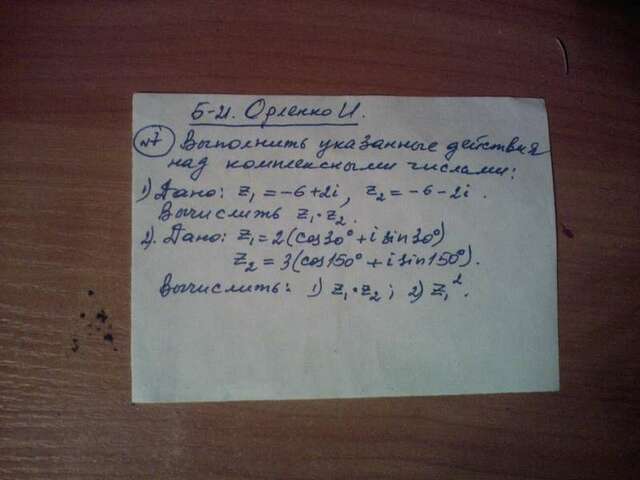 Б-21. Орленко И.
№7 Выполнить указанные действия
над комплексными числами:
1) Дано: z₁ = -6+2i, z₂ = -6-2i.
Вычислить z₁·z₂.
2). Дано: z₁ = 2(cos30° + i sin30°)
z₂ = 3(cos150° + i sin150°).
Вычислить: 1) z₁·z₂; 2) z₁².